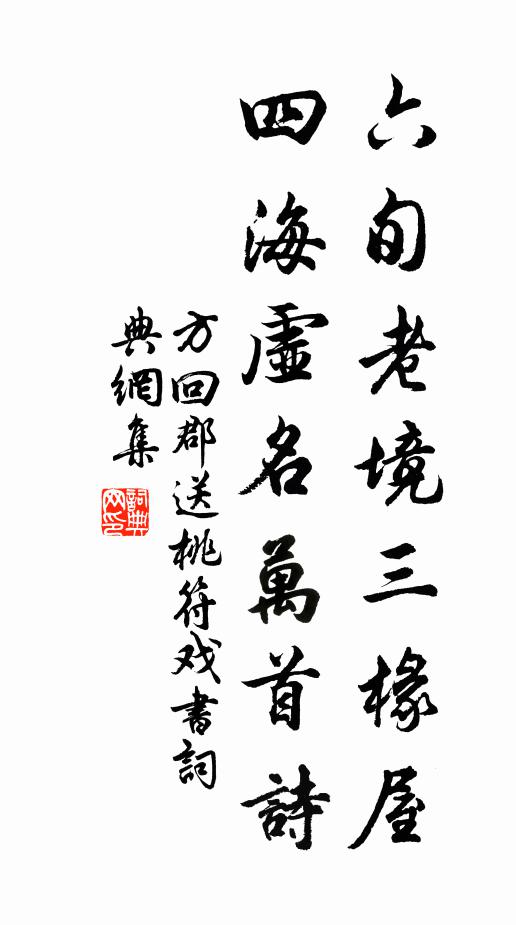 六旬老境三椽屋
四海虛名萬首詩
方回郡送桃符戏書詞
典網集
詞典
网印